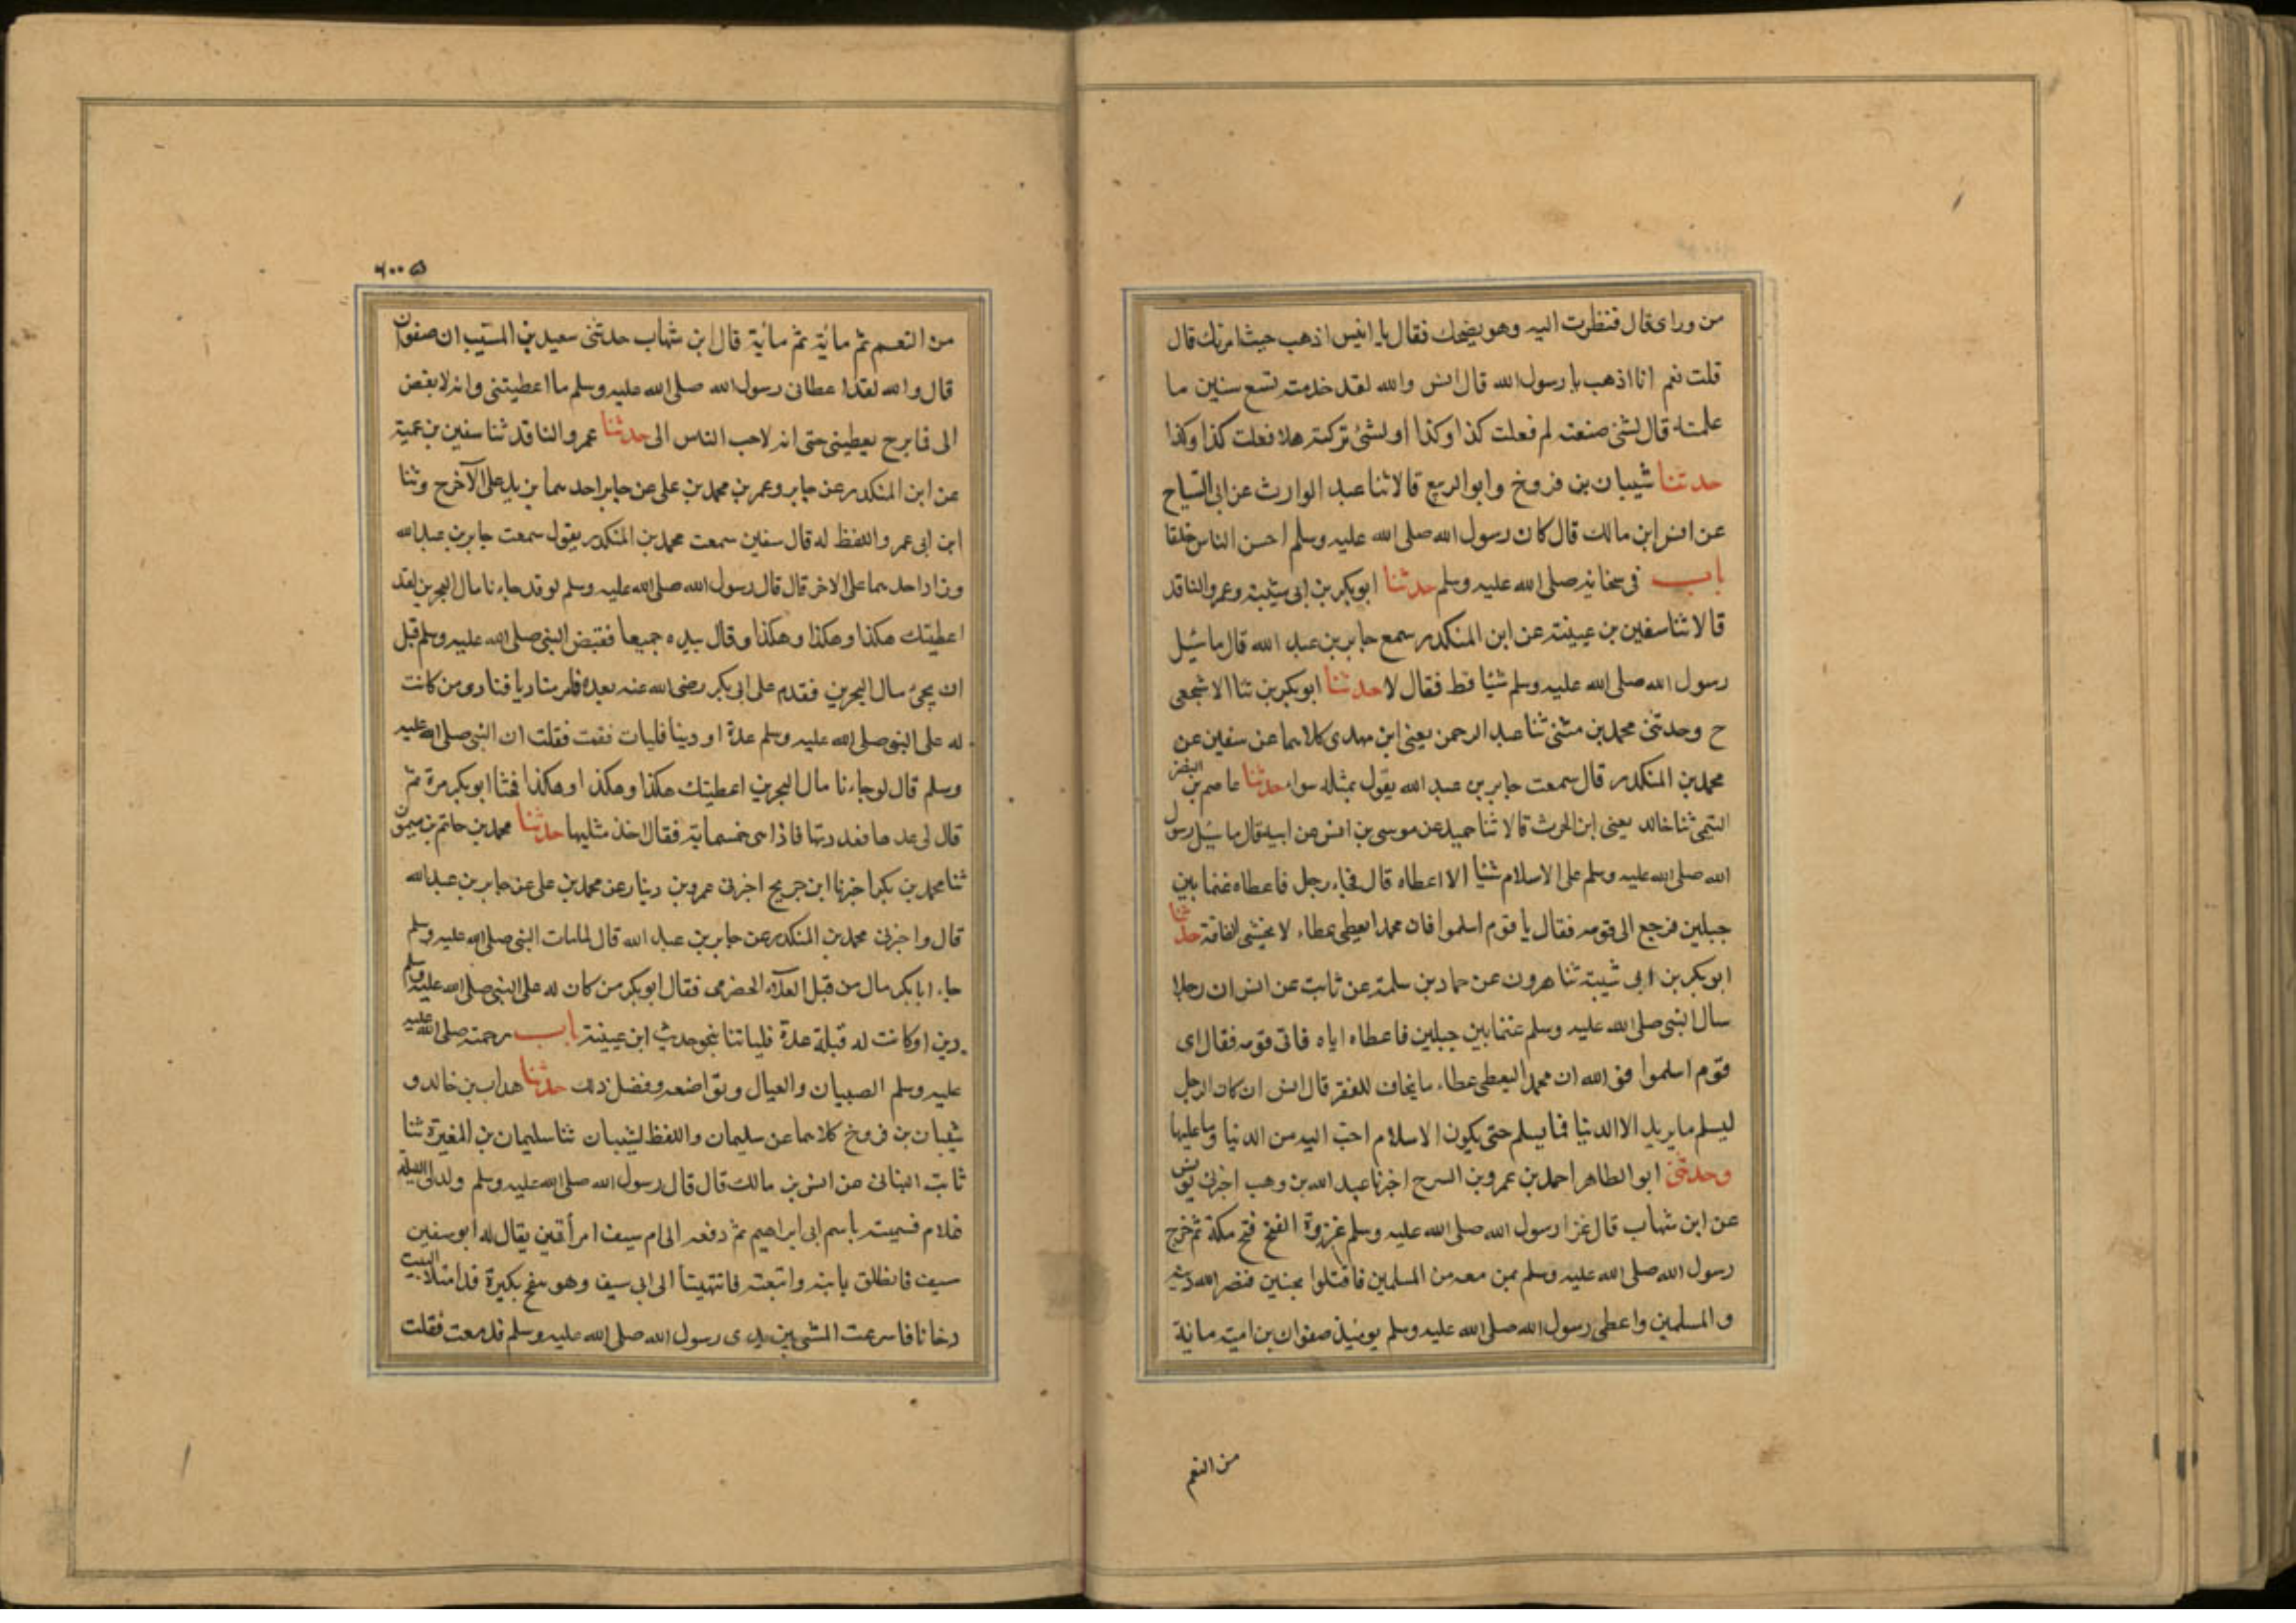 من وراى قال فنظرت اليه وهو يضحك فقال يا انيس اذهب حيث امرتك قال
قلت نعم انا اذهب يا رسول الله قال انس والله لقد خدمته تسع سنين ما
علمته قال لشئ صنعته لم فعلت كذا وكذا او لشئ تركته هلا فعلت كذا وكذا
حدثنا شيبان بن فروخ وابو الربيع قالا ثنا عبد الوارث عن ابى التياح
عن انس ابن مالك قال كان رسول الله صلى الله عليه وسلم احسن الناس خلقا
باب فى سخائه صلى الله عليه وسلم حدثنا ابو بكر بن ابى شيبة وعمرو الناقد
قالا ثنا سفين بن عيينة عن ابن المنكدر سمع جابر بن عبد الله قال ما سئل
رسول الله صلى الله عليه وسلم شيا قط فقال لا حدثنا ابو بكر بن ثنا الاشجعى
ح وحدثنى محمد بن مثنى ثنا عبد الرحمن يعنى ابن مهدى كلاهما عن سفين عن
محمد بن المنكدر قال سمعت جابر بن عبد الله يقول بمثله سواء حدثنا عاصم بن النضر
التيمى ثنا خالد يعنى ابن الحرث قالا ثنا حميد عن موسى بن انس عن ابيه قال ما سئل رسول
الله صلى الله عليه وسلم على الاسلام شيا الا اعطاه قال فجاء رجل فاعطاه غنما بين
جبلين فرجع الى قومه فقال يا قوم اسلموا فان محمدا يعطى عطاء لا يخشى الفاقة حدثنا
ابو بكر بن ابى شيبة ثنا هرون عن حماد بن سلمة عن ثابت عن انس ان رجلا
سال النبى صلى الله عليه وسلم غنما بين جبلين فاعطاه اياه فاتى قومه فقال اى
قوم اسلموا فو الله ان محمدا ليعطى عطاء ما يخاف للفقر قال انس ان كان الرجل
ليسلم ما يريد الا الدنيا فما يسلم حتى يكون الاسلام احب اليه من الدنيا وما عليها
وحدثنى ابو الطاهر احمد بن عمرو بن السرح اخبرنا عبد الله بن وهب اخبرنى يونس
عن ابن شهاب قال غزا رسول الله صلى الله عليه وسلم غزوة الفتح فتح مكة ثم خرج
رسول الله صلى الله عليه وسلم بمن معه من المسلمين فاقتتلوا بحنين فنصر الله دينه
والمسلمين واعطى رسول الله صلى الله عليه وسلم يومئذ صفوان بن امية مائة
من النعم
من النعم ثم مائة ثم مائة قال ابن شهاب حدثنى سعيد بن المسيب ان صفوان
قال والله لقد اعطانى رسول الله صلى الله عليه وسلم ما اعطيتنى وانه لابغض
الى فما برح يعطينى حتى انه لاحب الناس الى حدثنا عمرو الناقد ثنا سفين بن عيينة
عن ابن المنكدر عن جابر وعمر بن محمد بن على عن جابر احدهما يزيد على الآخر ح وثنا
ابن ابى عمر واللفظ له قال سفين سمعت محمد بن المنكدر يقول سمعت جابر بن عبد الله
وزاد احدهما على الاخر قال قال رسول الله صلى الله عليه وسلم لو قد جاءنا مال البحرين لقد
اعطيتك هكذا وهكذا وهكذا وقال بيده جميعا فقبض النبى صلى الله عليه وسلم قبل
ان يجئ مال البحرين فقدم على ابى بكر رضى الله عنه بعده فامر مناديا فنادى من كانت
له على النبى صلى الله عليه وسلم عدة او دينا فليات فقمت فقلت ان النبى صلى الله عليه
وسلم قال لو جاءنا مال البحرين اعطيتك هكذا وهكذا وهكذا فحثا ابو بكر مرة ثم
قال لى عدها فعددتها فاذا هى خمسماية فقال خذ مثليها حدثنا محمد بن حاتم بن ميمون
ثنا محمد بن بكر اخبرنا ابن جريج اخبرنى عمرو بن دينار عن محمد بن على عن جابر بن عبد الله
قال واخبرنى محمد بن المنكدر عن جابر بن عبد الله قال لما مات النبى صلى الله عليه وسلم
جاء ابا بكر مال من قبل العلاء الحضرمى فقال ابو بكر من كان له على النبى صلى الله عليه وسلم
دين او كانت له قبله عدة فلياتنا بنحو حديث ابن عيينة باب رحمته صلى الله عليه
عليه وسلم الصبيان والعيال وتواضعه وفضل ذلك حدثنا هداب بن خالد و
شيبان بن فروخ كلاهما عن سليمان واللفظ لشيبان ثنا سليمان بن المغيرة ثنا
ثابت البنانى عن انس بن مالك قال قال رسول الله صلى الله عليه وسلم ولد لى الليلة
غلام فسميته باسم ابى ابراهيم ثم دفعه الى ام سيف امرأة قين يقال له ابو سفين
سيف فانطلق يا بنه واتبعته فانتهيتا الى ابى سيف وهو ينفخ بكيره قد امتلا البيت
دخانا فاسرعت المشى بين يدى رسول الله صلى الله عليه وسلم فدمعت فقلت